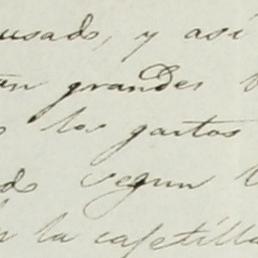 usado, y así
an grandes
los gastos
segun
la cafetilla